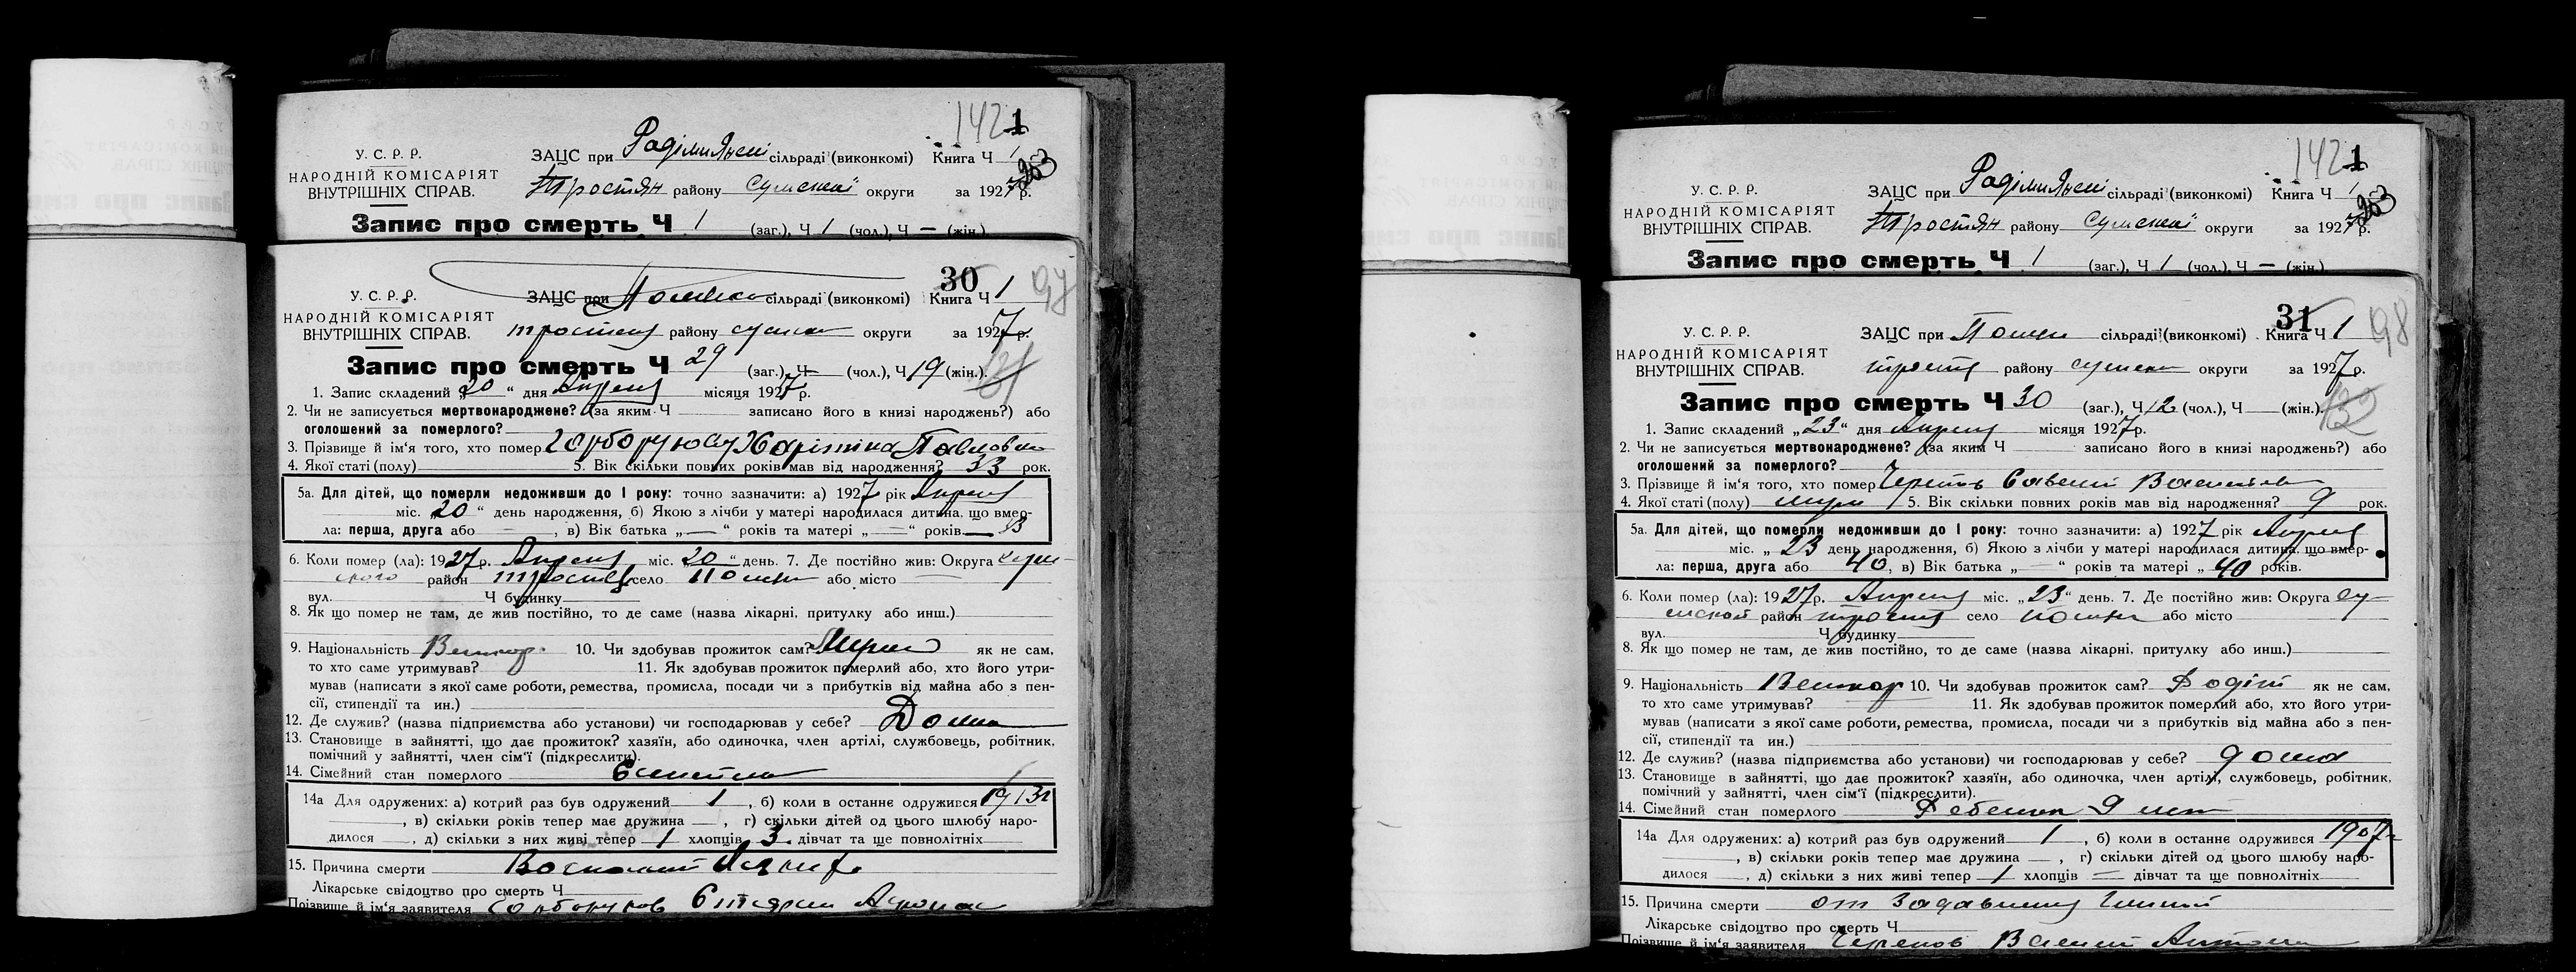 142 1
У. С. Р. Р.
НАРОДНІЙ КОМІСАРІЯТ
ВНУТРІШНІХ СПРАВ.
ЗАЦС при сільраді (виконкомі) Книга Ч 1
Тростян району Сумской округи за 1927 р.
Запис про смерть Ч 1 (заг.), Ч 1 (чол.), Ч — (жін.).
30 97
У. С. Р. Р.
НАРОДНІЙ КОМІСАРІЯТ
ВНУТРІШНІХ СПРАВ.
ЗАЦС при сільраді (виконкомі) Книга Ч 1
району округи за 1927 р.
Запис про смерть Ч 29 (заг.), Ч — (чол.), Ч 19 (жін.).
1. Запис складений „20“ дня Апреля місяця 1927 р.
2. Чи не записується мертвонароджене? (за яким Ч записано його в книзі народжень?) або
оголошений за померлого?
3. Прізвище й ім'я того, хто помер Харітіна Павловна
4. Якої статі (полу) 5. Вік скільки повних років мав від народження? 33 рок.
5а. Для дітей, що померли недоживши до 1 року: точно зазначити: а) 1927 рік Апреля
міс. „20“ день народження, б) Якою з лічби у матері народилася дитина, що вмер-
ла: перша, друга або —, в) Вік батька „—“ років та матері „—“ років — 33
6. Коли помер (ла): 1927 р. Апреля міс. „20“ день. 7. Де постійно жив: Округа Сум-
ского район село або місто —
вул. Ч будинку
8. Як що помер не там, де жив постійно, то де саме (назва лікарні, притулку або инш.)
9. Національність 10. Чи здобував прожиток сам? як не сам,
то хто саме утримував? 11. Як здобував прожиток померлий або, хто його утри-
мував (написати з якої саме роботи, ремества, промисла, посади чи з прибутків від майна або з пен-
сії, стипендії та ин.)
12. Де служив? (назва підприємства або установи) чи господарював у себе? Дома
13. Становище в зайнятті, що дає прожиток? хазяїн, або одиночка, член артілі, службовець, робітник,
помічний у зайнятті, член сім'ї (підкреслити).
14. Сімейний стан померлого
14а Для одружених: а) котрий раз був одружений 1, б) коли в останнє одружився 1913г
, в) скільки років тепер має дружина —, г) скільки дітей од цього шлюбу наро-
дилося —, д) скільки з них живі тепер 1 хлопців 3 дівчат та ще повнолітніх
15. Причина смерти Воспаление
Лікарське свідоцтво про смерть Ч
Прізвище й ім'я заявителя
142 1
У. С. Р. Р.
НАРОДНІЙ КОМІСАРІЯТ
ВНУТРІШНІХ СПРАВ.
ЗАЦС при сільраді (виконкомі) Книга Ч 1
Тростян району Сумской округи за 1927 р.
Запис про смерть Ч 1 (заг.), Ч 1 (чол.), Ч — (жін.).
31 98
У. С. Р. Р.
НАРОДНІЙ КОМІСАРІЯТ
ВНУТРІШНІХ СПРАВ.
ЗАЦС при сільраді (виконкомі) Книга Ч 1
району округи за 1927 р.
132
Запис про смерть Ч 30 (заг.), Ч 12 (чол.), Ч (жін.).
1. Запис складений „23“ дня Апреля місяця 1927 р.
2. Чи не записується мертвонароджене? (за яким Ч записано його в книзі народжень?) або
оголошений за померлого?
3. Прізвище й ім'я того, хто помер
4. Якої статі (полу) муж 5. Вік скільки повних років мав від народження? 9 рок.
5а. Для дітей, що померли недоживши до 1 року: точно зазначити: а) 1927 рік Апреля
міс. „23 день народження, б) Якою з лічби у матері народилася дитина, що вмер-
ла: перша, друга або 40, в) Вік батька „—“ років та матері „40 років.
6. Коли помер (ла): 1927 р. Апреля міс. „23“ день. 7. Де постійно жив: Округа Су-
мской район село або місто
вул. Ч будинку
8. Як що помер не там, де жив постійно, то де саме (назва лікарні, притулку або инш.)
9. Національність 10. Чи здобував прожиток сам? як не сам,
то хто саме утримував? 11. Як здобував прожиток померлий або, хто його утри-
мував (написати з якої саме роботи, ремества, промисла, посади чи з прибутків від майна або з пен-
сії, стипендії та ин.)
12. Де служив? (назва підприємства або установи) чи господарював у себе? дома
13. Становище в зайнятті, що дає прожиток? хазяїн, або одиночка, член артілі, службовець, робітник,
помічний у зайнятті, член сім'ї (підкреслити).
14. Сімейний стан померлого Ребенок 9 лет
14а Для одружених: а) котрий раз був одружений 1, б) коли в останнє одружився 1907г
, в) скільки років тепер має дружина —, г) скільки дітей од цього шлюбу наро-
дилося —, д) скільки з них живі тепер 1 хлопців — дівчат та ще повнолітніх
15. Причина смерти от
Лікарське свідоцтво про смерть Ч
Прізвище й ім'я заявителя